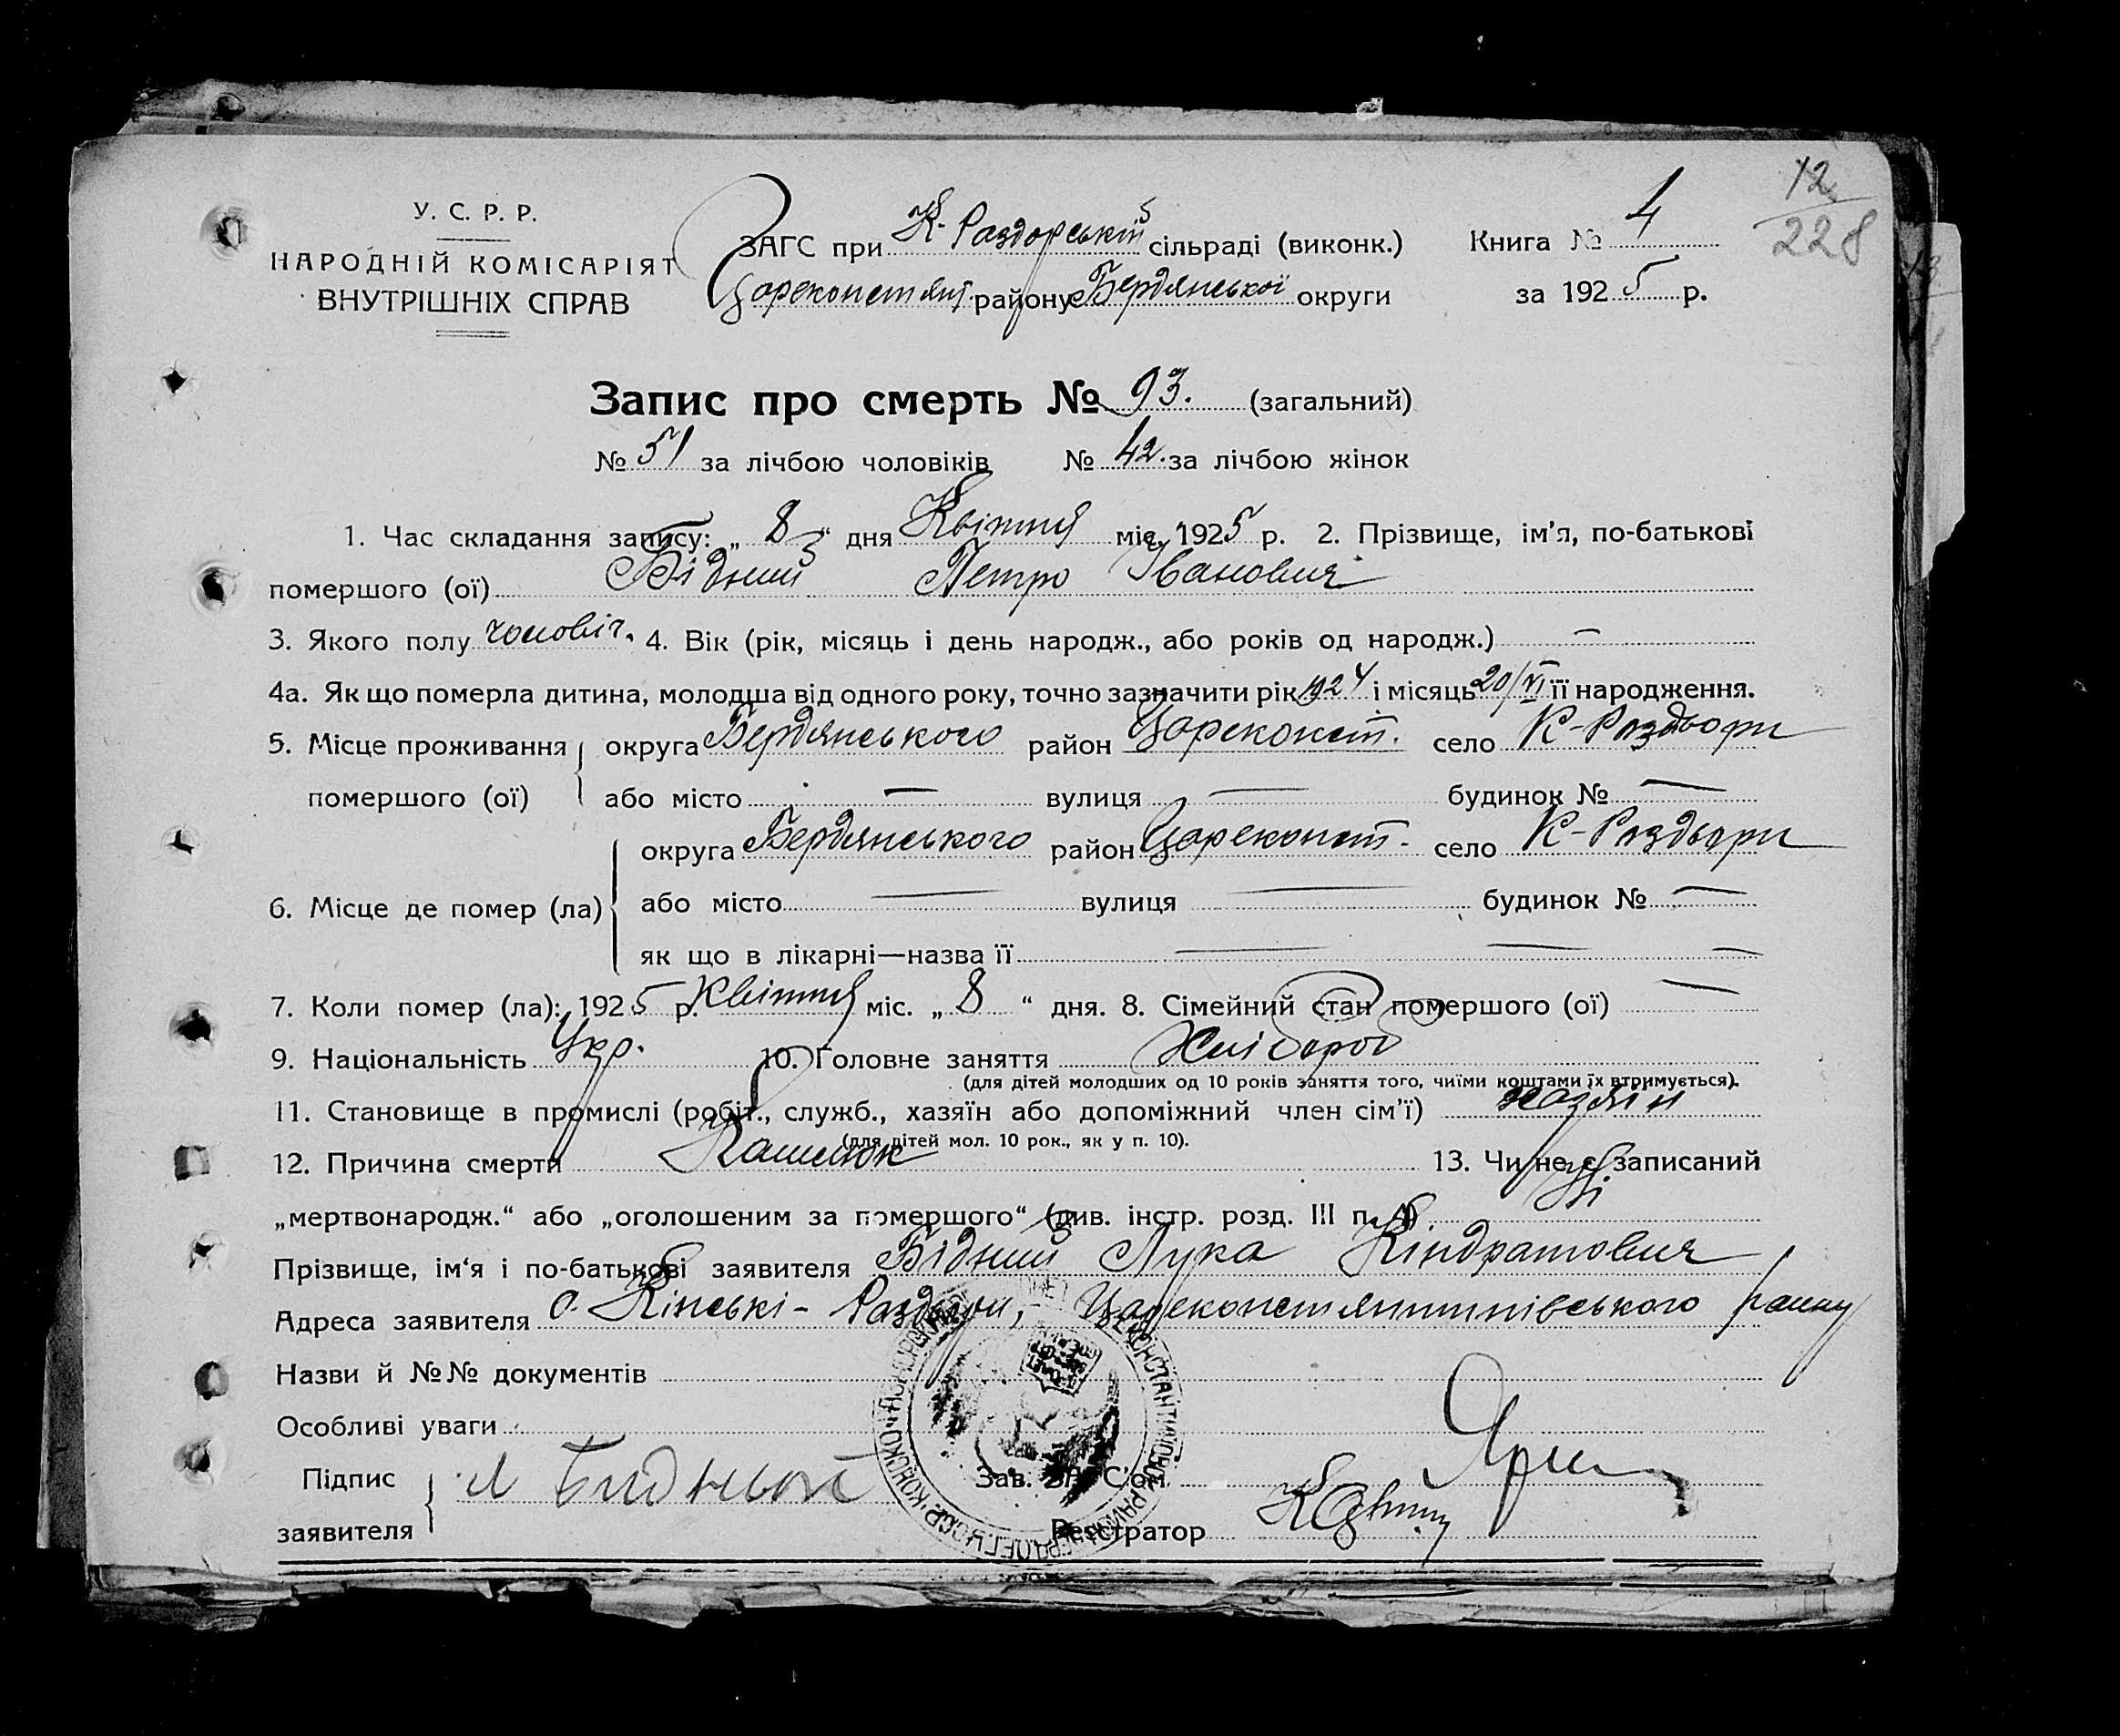 У. С. Р. Р.
НАРОДНІЙ КОМІСАРІЯТ
ВНУТРІШНІХ СПРАВ
ЗАГС при К-Раздорській сільраді (виконк.)
Цареконстянт. району Бердянської округи
Книга № 4
за 1925 р.
12
228
Запис про смерть № 93. (загальний)
№ 51 за лічбою чоловіків № 42. за лічбою жінок
1. Час складання запису: „ 8 “ дня Квітня міс. 1925 р. 2. Прізвище, ім’я, по-батькові
помершого (ої) Бідний Петро Іванович
3. Якого полу чоловіч. 4. Вік (рік, місяць і день народж., або років од народж.) —
4а. Як що померла дитина, молодша від одного року, точно зазначити рік 1924 і місяць 20/VI її народження.
5. Місце проживання округа Бердянського район Цареконст. село К-Роздори
помершого (ої) або місто — вулиця — будинок № —
округа Бердянського район Цареконст. село К-Роздори
6. Місце де помер (ла) або місто — вулиця — будинок № —
як що в лікарні—назва її — — —
7. Коли помер (ла): 1925 р. Квітня міс. „ 8 “ дня. 8. Сімейний стан помершого (ої) —
9. Національність Укр. 10. Головне заняття Хлібороб
(для дітей молодших од 10 років заняття того, чиїми коштами їх втримується).
11. Становище в промислі (робіт., служб., хазяїн або допоміжний член сім’ї) хазяїн
(для дітей мол. 10 рок., як у п. 10).
12. Причина смерти Кашлюк 13. Чи не є записаний
„мертвонародж.“ або „оголошеним за помершого“ (див. інстр. розд. III п. 4). Ні
Прізвище, ім‘я і по-батькові заявителя Бідний Лука Кіндратович
Адреса заявителя с. Кінські-Раздори, Цареконстянтинівського району
Назви й №№ документів
Особливі уваги
Підпис
заявителя Л Бидный
Зав. ЗАГС’ом
Реєстратор